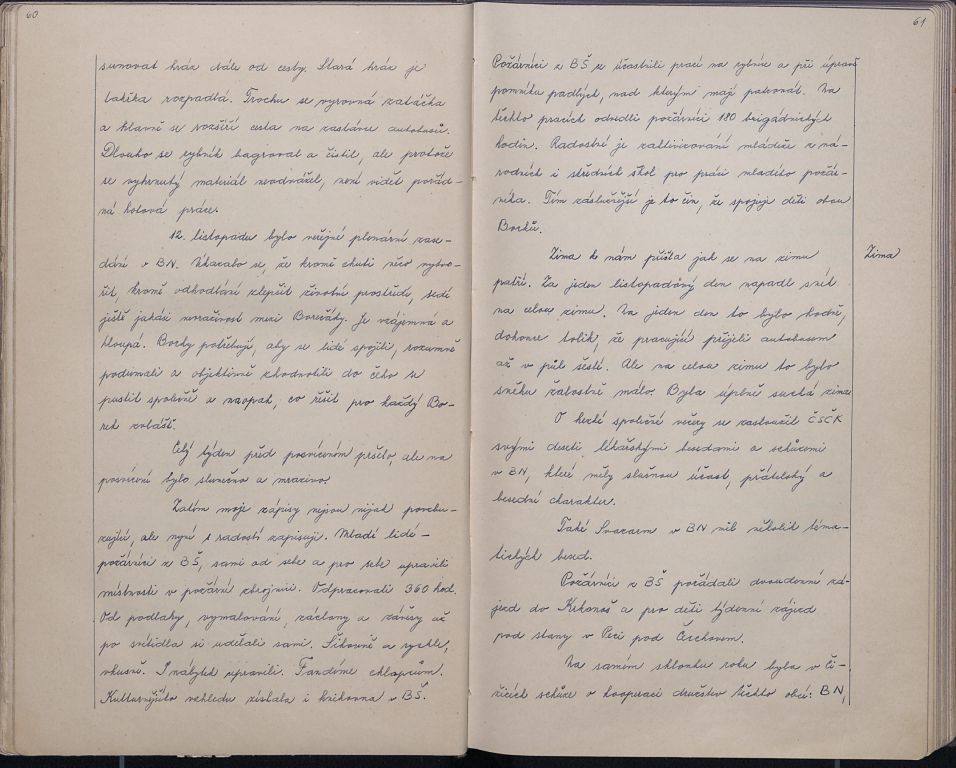 60
sunovat hráz dále od cesty. Stará hráz je
takřka rozpadlá. Trochu se vyrovná zatáčka
a hlavně se rozšíří cesta na zastávce autobusů.
Dlouho se rybník bagroval a čistil, ale protože
se vyhrnutý materiál neodvážel, není vidět pořád-
ná hotová práce.
12. listopadu bylo veřejné plenární zase-
dání v BN. Ukázalo se, že kromě chuti něco vytvo-
řit, kromě odhodlání zlepšit životní prostředí, sedí
ještě jakási nevraživost mezi Borečáky. Je vzájemná a
hloupá. Borky potřebují, aby se lidé spojili, rozumně
podumali a objektivně zhodnotili do čeho se
pustit společně a naopak, co řešit pro každý Bo-
rek zvlášť.
Celý týden před posvícením pršelo, ale na
posvícení bylo slunečno a mrazivo.
Zatím moje zápisy nejsou nijak povzbu-
zující, ale nyní s radostí zapisuji. Mladí lidé -
požárníci z BŠ, sami od sebe a pro sebe upravili
místnosti v požární zbrojnici. Odpracovali 360 hod.
Od podlahy, vymalování, záclony a závěsy až
po svítidla si udělali sami. Šikovně a rychle,
vkusně. I nábytek upravili. Fandíme chlapcům.
Kulturnějšího vzhledu získala i knihovna v BŠ.
61
Požárníci z BŠ se účastnili prací na rybníce a při úpravě
pomníku padlých, nad kterým mají patronát. Na
těchto pracích odvedli požárníci 180 brigádnických
hodin. Radostné je zaktivizování mládeže z ná-
rodních i středních škol pro práci mladého požár-
níka. Tím záslužnější je to čin, že spojuje děti obou
Borků.
Zima k nám přišla jak se na zimu
Zima
patří. Za jeden listopadový den napadl sníh
na celou zimu. Na jeden den to bylo hodně,
dokonce tolik, že pracující přijeli autobusem
až v půl šesté. Ale na celou zimu to bylo
sněhu žalostně málo. Byla úplně suchá zima.
O hezké společné večery se zasloužil ČSČK
svými deseti, lékařskými besedami a schůzemi
v BN, které měly slušnou účast, přátelský a
besední charakter.
Také Svazarm v BN měl několik téma-
tických besed.
Požárníci z BŠ pořádali dvoudenní zá-
jezd do Krkonoš a pro děti týdenní zájezd
pod stany v Peci pod Čerchovem.
Na samém sklonku roku byla v Či-
žicích schůze o kooperaci družstev těchto obcí: BN,